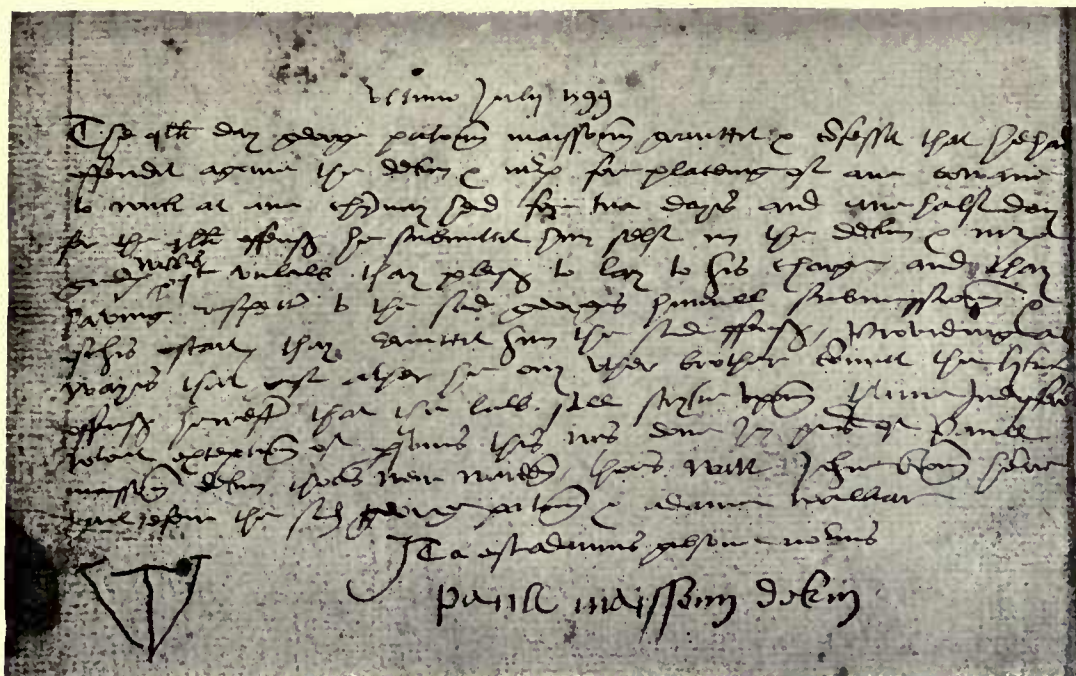 Vltimo July 1599
The qlk day george patoun maissoun granttit & cofessit that he had
offendit agane the dekin & mrs for placeing of ane cowane
to wirk at ane chymnay heid for tua dayis and ane half day
for the qlk offenss he submittit him self in the dekin & mrs
gude willis qt vnlaw thay pless to lay to his charge and thay
having respect to the said georgis humill submissioun &
of his estait thay remittit him the said offenss Providing al
wayis that gif ather he ony vther brother comitt the lyke
offenss heirefter that the law sall stryke vpoun thame
wtout exceptioun of personis this wes done in prns of Paull
maissoun dekin thoas weir warden thoas watt Johne broun henrie
the said george patoun & adame walkar
Ita est adamus gibsone norius
Paull maissoun dekin